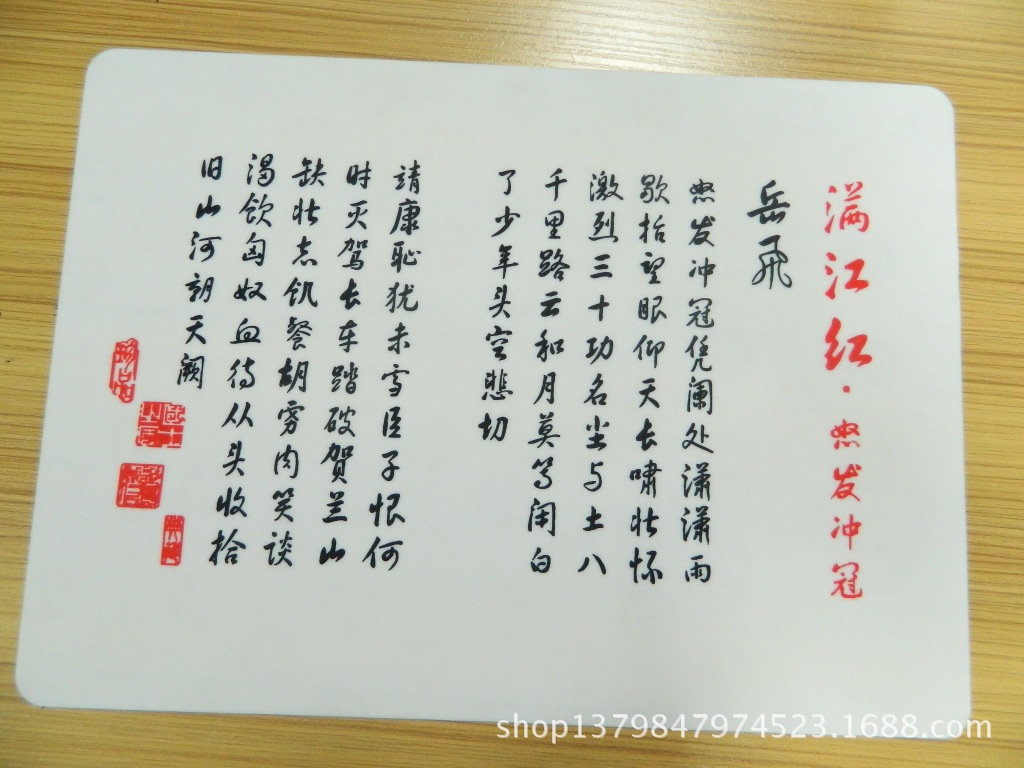 满江红·怒发冲冠
岳飞
怒发冲冠凭阑处潇潇雨
歇抬望眼仰天长啸壮怀
激烈三十功名尘与土八
千里路云和月莫等闲白
了少年头空悲切
靖康耻犹未雪臣子恨何
时灭驾长车踏破贺兰山
缺壮志饥餐胡虏肉笑谈
渴饮匈奴血待从头收拾
旧山河朝天阙
shop1379847974523.1688.com